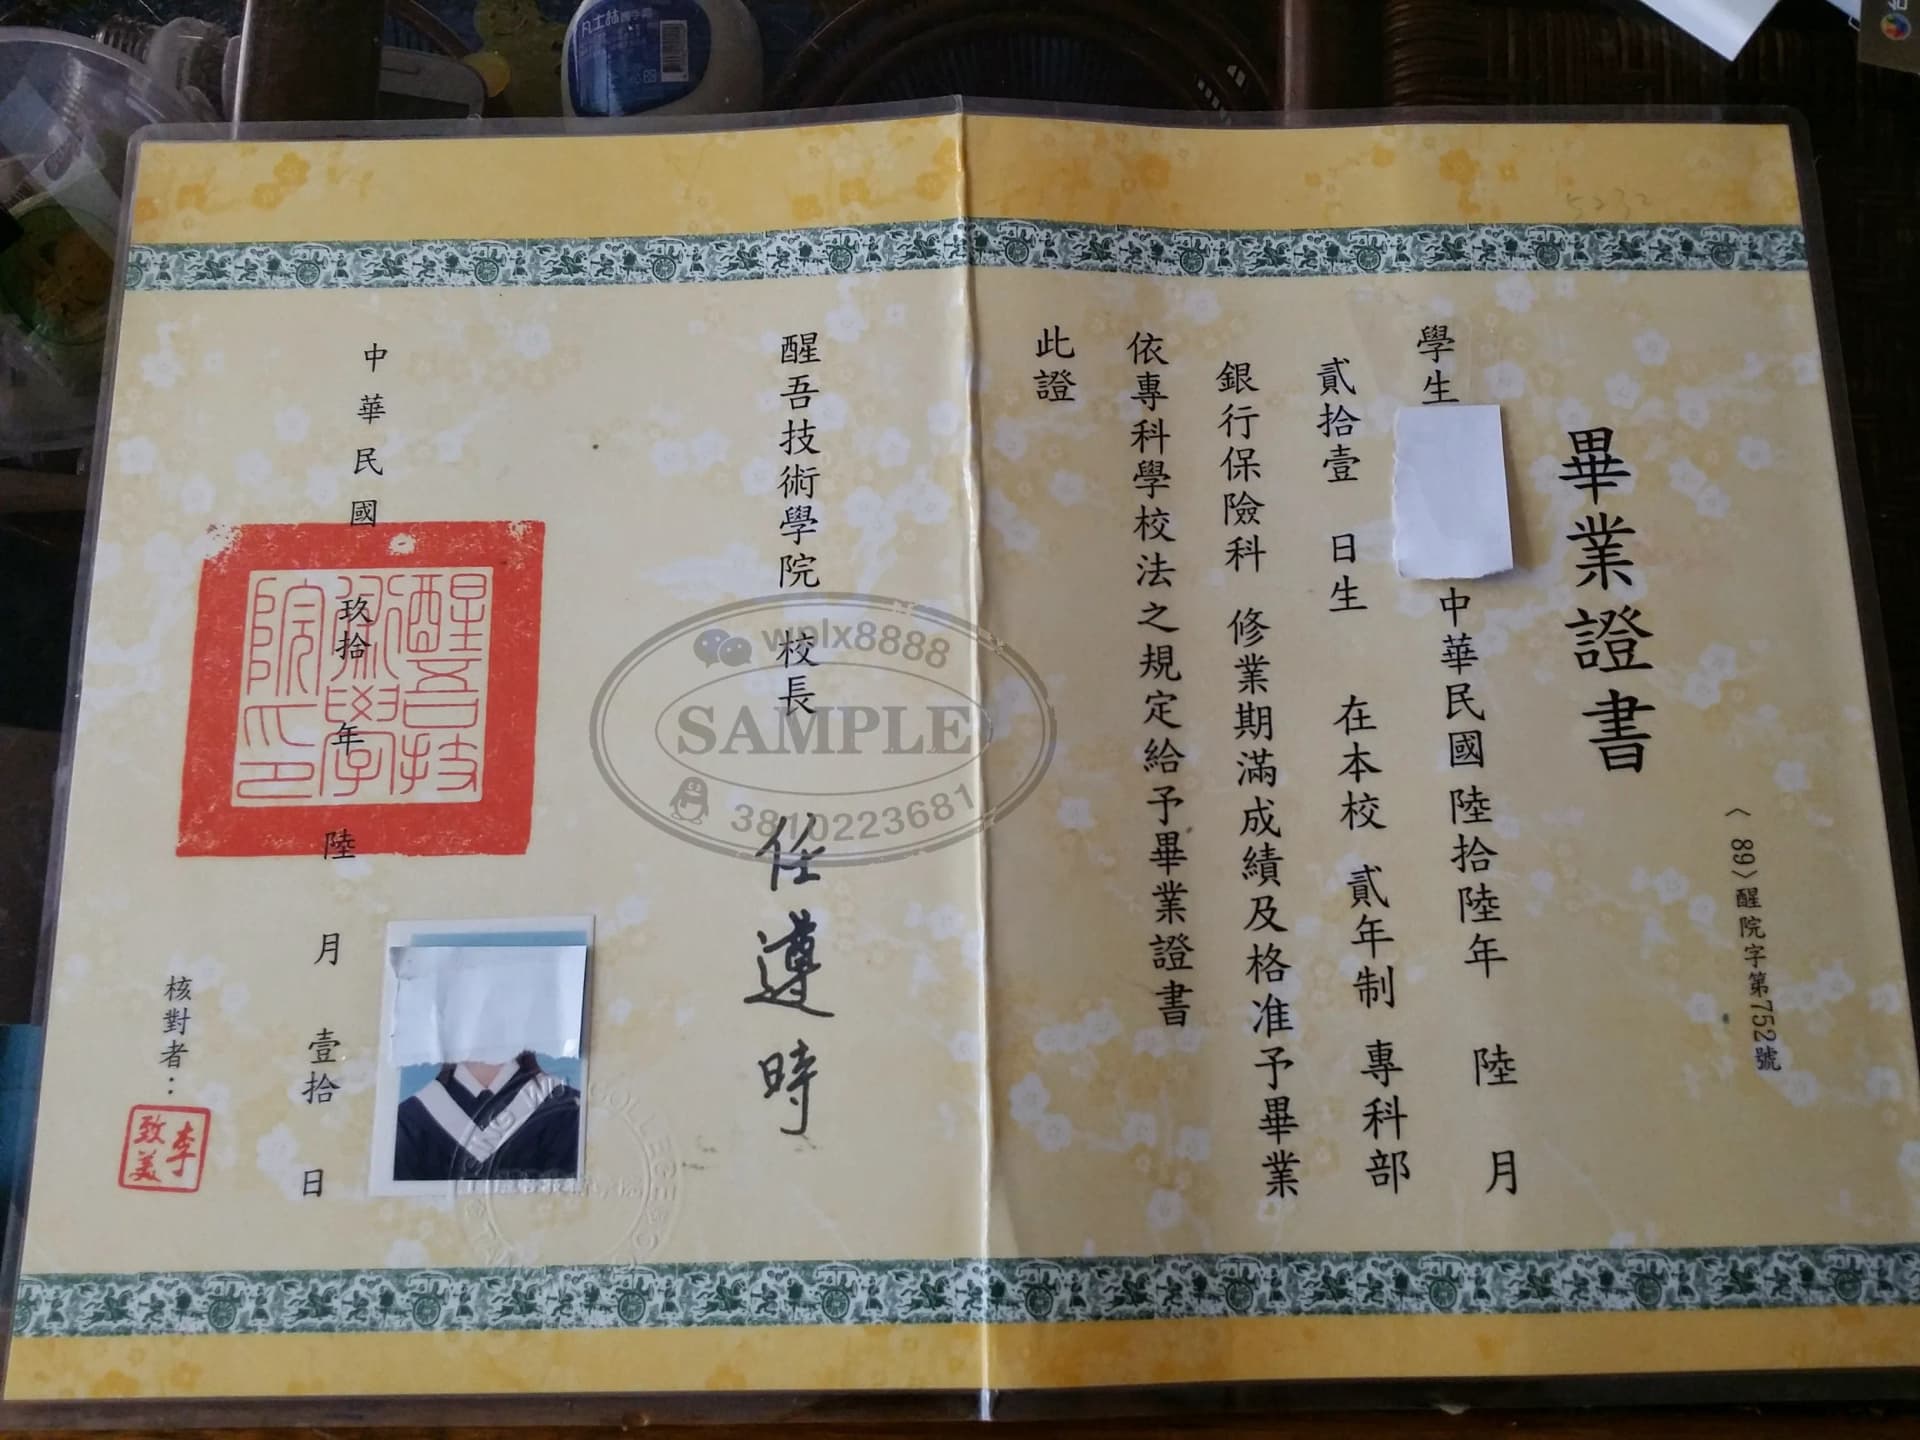 畢業證書
〈89〉醒院字第752號
學生
中華民國陸拾陸年 陸 月
貳拾壹 日生 在本校 貳年制 專科部
銀行保險科 修業期滿成績及格准予畢業
依專科學校法之規定給予畢業證書
此證
醒吾技術學院 校長 任遵時
中華民國 玖拾 年 陸 月 壹拾 日
醒吾技術學院印
核對者：
李致美
wplx8888
SAMPLE
3810223681
5232
凡士林